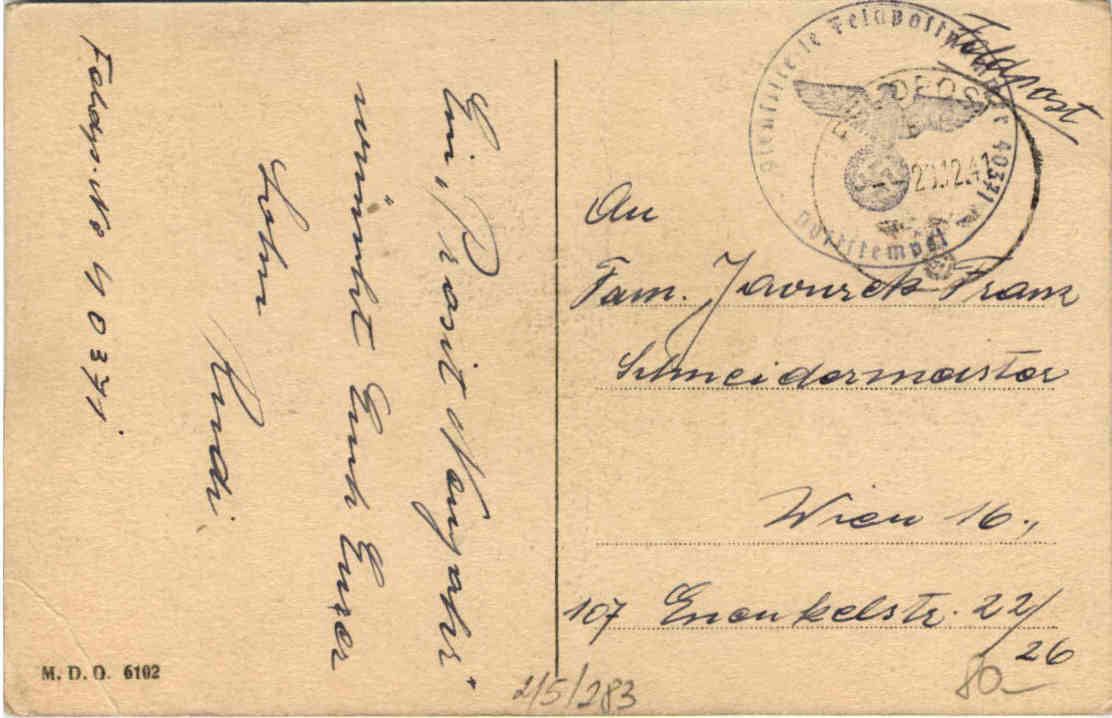 Ein „Prosit Neujahr“
wünscht Euch Euer
Sohn
Rudi
Feldp. No 40371
M. D. O. 6102
Feldpost
Dienststelle Feldpostnummer 40371
Briefstempel
FELDPOST
.12.41
An
Fam. Javurek Franz
Schneidermeister
Wien 16.,
107 Enenkelstr. 22/
26
2/5/283
80-